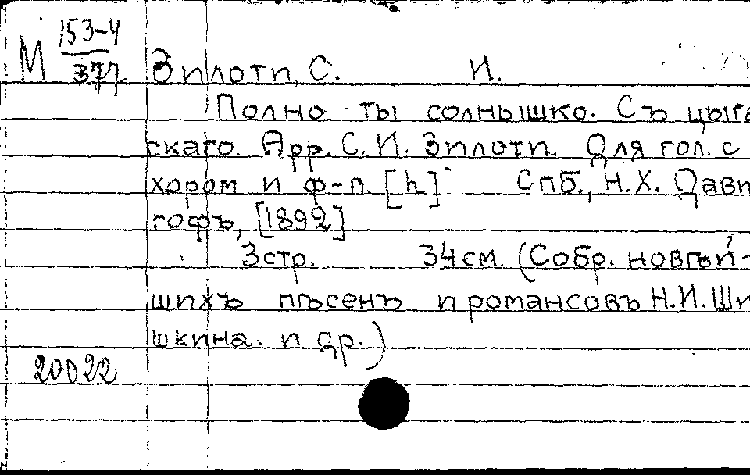 М 153-4
377.
Зилоти, С. И.
Полно ты солнышко. Съ цыга
скаго. Арр. С. И. Зилоти. Для гол. с
хором и ф-п. [h] Спб., Н. Х. Дави
гофъ, [1892]
3стр. 34см. (Собр. новѣй-
шихъ пѣсенъ и романсовъ Н. И. Ши
шкина. и др.)
20022